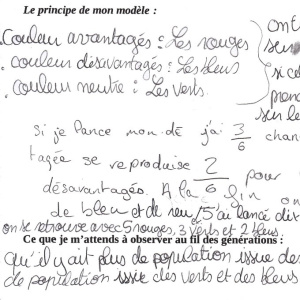 Le principe de mon modèle :
. Couleur avantagés : Les rouges
. couleur désavantagés : Les bleus
. couleur neutre : Les verts.
ont
si ce
pren
sur le
si je lance mon dé j'ai 3/6 chan
tagée se reproduise 2/6 pour
désavantagés. A la fin on
de bleu et de neu 15 ai lancé dix
on se retrouve avec 5 rouges, 3 verts et 2 bleus.
Ce que je m'attends à observer au fil des générations :
qu'il y ait plus de population issue des
de population issue des verts et des bleus